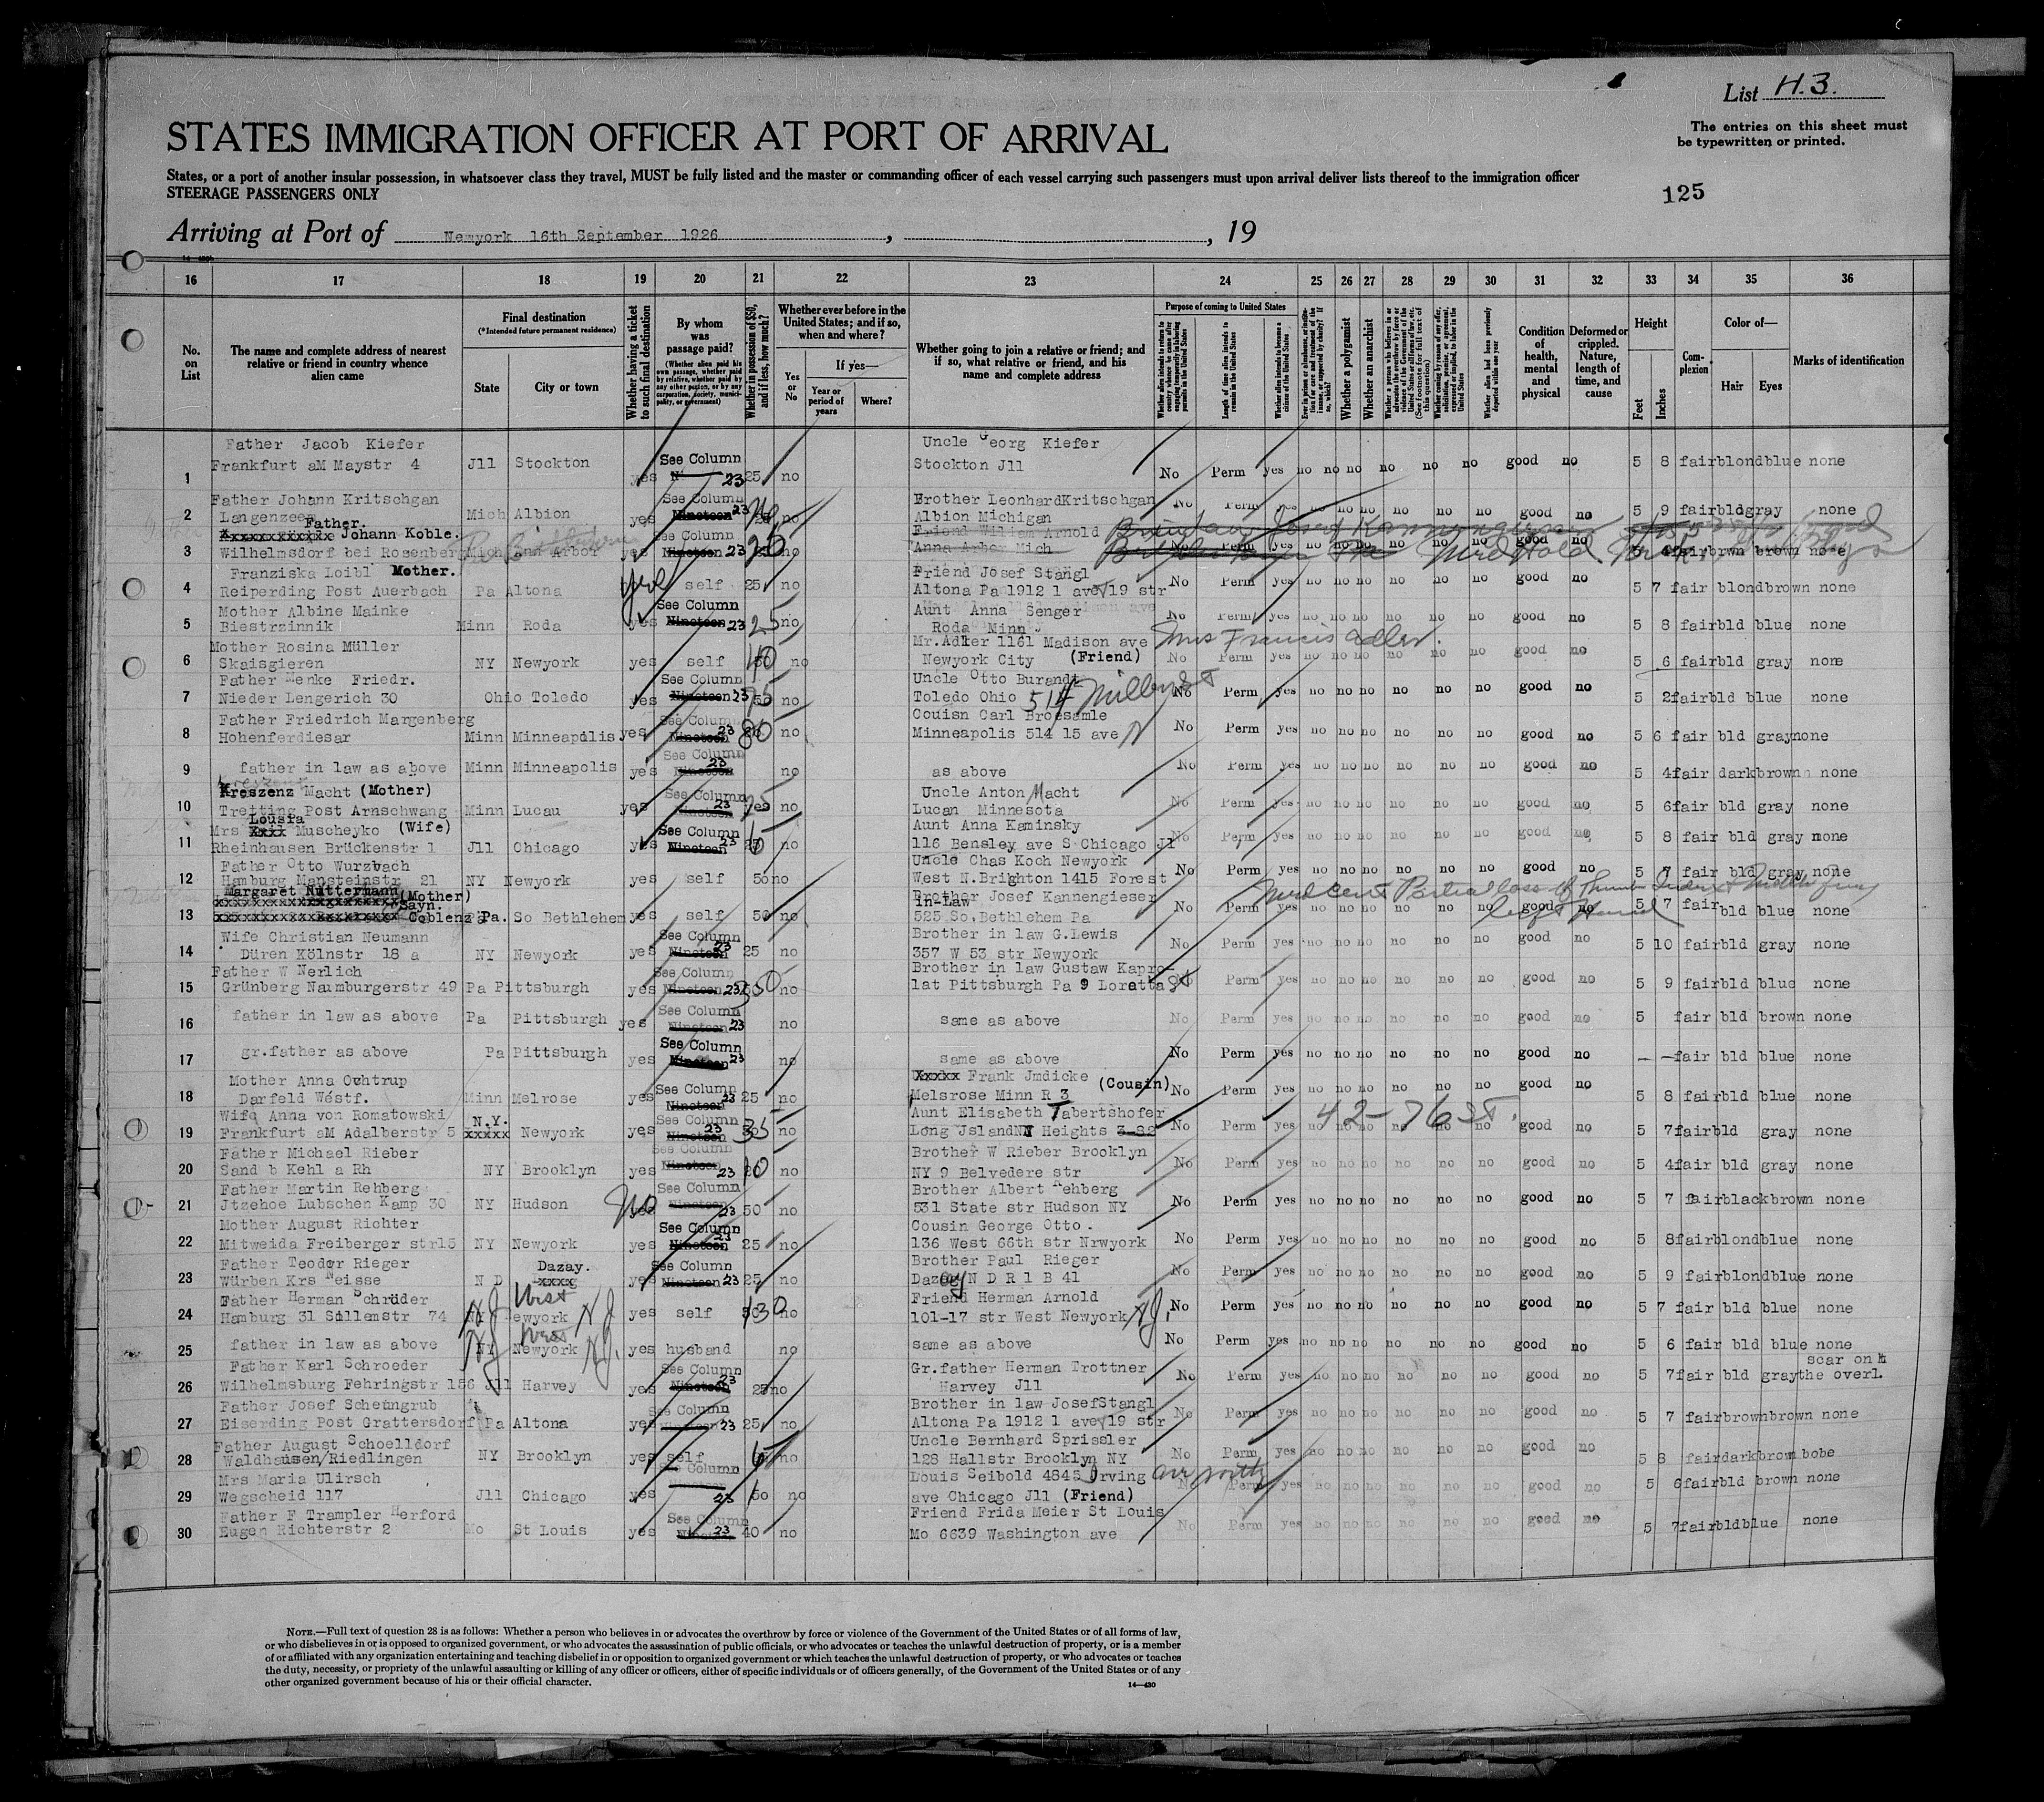 List H.3.
The entries on this sheet must
be typewritten or printed.
STATES IMMIGRATION OFFICER AT PORT OF ARRIVAL
States, or a port of another insular possession, in whatsoever class they travel, MUST be fully listed and the master or commanding officer of each vessel carrying such passengers must upon arrival deliver lists thereof to the immigration officer
STEERAGE PASSENGERS ONLY
125
Arriving at Port of Newyork 16th September 1926, , 19
16 17 18 19 20 21 22 23 24 25 26 27 28 29 30 31 32 33 34 35 36
No. on List
The name and complete address of nearest relative or friend in country whence alien came
Final destination
(*Intended future permanent residence)
State
City or town
Whether having a ticket to such final destination
By whom was passage paid?
(Whether alien paid his own passage, whether paid by relative, whether paid by any other person, or by any corporation, society, municipality, or government)
Whether in possession of $50, and if less, how much?
Whether ever before in the United States; and if so, when and where?
Yes or No
If yes—
Year or period of years
Where?
Whether going to join a relative or friend; and if so, what relative or friend, and his name and complete address
Purpose of coming to United States
Length of time alien intends to remain in the United States
Whether alien intends to become a citizen of the United States
Whether a polygamist
Whether an anarchist
Condition of health, mental and physical
Deformed or crippled. Nature, length of time, and cause
Height
Feet
Inches
Complexion
Color of—
Hair
Eyes
Marks of identification
Father Jacob Kiefer Uncle Georg Kiefer
1 Frankfurt aM Maystr 4 Jll Stockton yes See Column 23 25 no Stockton Jll No Perm yes no no no no no no good no 5 8 fair blond blue none
Father Johann Kritschgan Brother Leonhard Kritschgan
2 Langenzeen Mich Albion yes See Column Nineteen 23 no Albion Michigan No Perm yes no no no no no no good no 5 9 fair bld gray none
Father. Johann Koble. Friend Wiliam Arnold
3 Wilhelmsdorf bei Rosenberg Mich Ann Arbor yes See Column Nineteen 23 25 no Anna Arbor Mich No Perm yes no no no no no no good no fair brwn brown none
Franziska Loibl Mother. Friend Josef Stangl
4 Reiperding Post Auerbach Pa Altona yes self 25 no Altona Pa 1912 1 ave 19 str No Perm yes no no no no no no good no 5 7 fair blond brown none
Mother Albine Mainke Aunt Anna Senger
5 Biestrzinnik Minn Roda yes See Column Nineteen 23 25 no Roda Minn No Perm yes no no no no no no good no 5 8 fair bld blue none
Mother Rosina Müller Mr. Adler 1161 Madison ave Mrs Francis Adler.
6 Skaisgieren NY Newyork yes self 40 no Newyork City (Friend) No Perm yes no no no no no no good no 5 6 fair bld gray none
Father Menke Friedr. Uncle Otto Burandt
7 Nieder Lengerich 30 Ohio Toledo yes See Column Nineteen 23 75 no Toledo Ohio 514 No Perm yes no no no no no no good no 5 2 fair bld blue none
Father Friedrich Margenberg Couisn Carl Broesamle
8 Hohenferdiesar Minn Minneapolis yes See Column Nineteen 23 80 no Minneapolis 514 15 ave N No Perm yes no no no no no no good no 5 6 fair bld gray none
9 father in law as above Minn Minneapolis yes See Column Nineteen 23 no as above No Perm yes no no no no no no good no 5 4 fair dark brown none
Kreszenz Macht (Mother) Uncle Anton Macht
10 Tretting Post Arnschwang Minn Lucau yes See Column Nineteen 23 yes no Lucan Minnesota No Perm yes no no no no no no good no 5 6 fair bld gray none
Mrs Lousia Muscheyko (Wife) Aunt Anna Kaminsky
11 Rheinhausen Brückenstr 1 Jll Chicago yes See Column Nineteen 23 no 116 Bensley ave S Chicago Jl No Perm yes no no no no no no good no 5 8 fair bld gray none
Father Otto Wurzbach Uncle Chas Koch Newyork
12 Hamburg Mansteinstr 21 NY Newyork yes self 50 no West N.Brighton 1415 Forest No Perm yes no no no no no no good no 5 7 fair bld gray none
Margaret Nuttermann (Mother) Brother Josef Kannengieser in-law Med Cert Partial loss of Thumb Index & Middle fing
13 Sayn. Coblenz Pa. So Bethlehem yes self 50 no 525 So.Bethlehem Pa No Perm yes no no no no no no good no left Hand 5 7 fair bld blue none
Wife Christian Neumann Brother in law G.Lewis
14 Düren Kölnstr 18 a NY Newyork yes See Column Nineteen 23 25 no 357 W 53 str Newyork No Perm yes no no no no no no good no 5 10 fair bld gray none
Father W Nerlich Brother in law Gustaw Kapro-
15 Grünberg Naumburgerstr 49 Pa Pittsburgh yes See Column Nineteen 23 no lat Pittsburgh Pa 9 Loratta St No Perm yes no no no no no no good no 5 9 fair bld blue none
16 father in law as above Pa Pittsburgh yes See Column Nineteen 23 no same as above No Perm yes no no no no no no good no 5 fair bld brown none
17 gr.father as above Pa Pittsburgh yes See Column Nineteen 23 no same as above No Perm yes no no no no no no good no — — fair bld blue none
Mother Anna Ochtrup xxxxx Frank Jmdicke (Cousin)
18 Darfeld Westf. Minn Melrose yes See Column Nineteen 23 25 no Melsrose Minn R 3 No Perm yes no no no no no no good no 5 8 fair bld blue none
Wife Anna von Romatowski N.Y. Aunt Elisabeth Tabertshofer 42-76 St.
19 Frankfurt aM Adalberstr 5 xxxxx Newyork yes See Column Nineteen 23 35 no Long Jsland NY Heights 3-82 No Perm yes no no no no no no good no 5 7 fair bld gray none
Father Michael Rieber Brother W Rieber Brooklyn
20 Sand b Kehl a Rh NY Brooklyn yes See Column Nineteen 23 no NY 9 Belvedere str No Perm yes no no no no no no good no 5 4 fair bld gray none
Father Martin Rehberg Brother Albert Rehberg
21 Jtzehoe Lubschen Kamp 30 NY Hudson No yes See Column Nineteen 23 50 no 531 State str Hudson NY No Perm yes no no no no no no good no 5 7 fair black brown none
Mother August Richter Cousin George Otto .
22 Mitweida Freiberger str15 NY Newyork yes See Column Nineteen 23 25 no 136 West 66th str Nrwyork No Perm yes no no no no no no good no 5 8 fair blond blue none
Father Teodor Rieger Dazay. Brother Paul Rieger
23 Würben Krs Neisse N D xxxx yes See Column Nineteen 23 25 no Dazey N D R 1 B 41 No Perm yes no no no no no no good no 5 9 fair blond blue none
Father Herman Schröder West Friend Herman Arnold
24 Hamburg 31 Sillemstr 74 NJ Newyork NJ yes self no 101-17 str West Newyork N.J. No Perm yes no no no no no no good no 5 7 fair bld blue none
25 father in law as above NJ West Newyork N.J. yes husband no same as above No Perm yes no no no no no no good no 5 6 fair bld blue none
Father Karl Schroeder Gr.father Herman Trottner scar on
26 Wilhelmsburg Fehringstr 156 Jll Harvey yes See Column Nineteen 23 25 no Harvey Jll No Perm yes no no no no no no good no 5 7 fair bld gray the overl.
Father Josef Scheungrub Brother in law Josef Stangl
27 Eiserding Post Grattersdorf Pa Altona yes See Column Nineteen 23 25 no Altona Pa 1912 1 ave 19 str No Perm yes no no no no no no good no 5 7 fair brown brown none
Father August Schoelldorf Uncle Bernhard Sprissler
28 Waldhausen/Riedlingen NY Brooklyn yes self no 128 Hallstr Brooklyn NY No Perm yes no no no no no no good no 5 8 fair dark brown bobe
Mrs Maria Ulirsch Louis Seibold 4845 Irving
29 Wegscheid 117 Jll Chicago yes See Column 23 50 no ave Chicago Jll (Friend) No Perm yes no no no no no no good no 5 6 fair bld brown none
Father F Trampler Herford Friend Frida Meier St Louis
30 Eugen Richterstr 2 Mo St Louis yes See Column Nineteen 23 40 no Mo 6639 Washington ave No Perm yes no no no no no no good no 5 7 fair bld blue none
NOTE.—Full text of question 28 is as follows: Whether a person who believes in or advocates the overthrow by force or violence of the Government of the United States or of all forms of law,
or who disbelieves in or is opposed to organized government, or who advocates the assassination of public officials, or who advocates or teaches the unlawful destruction of property, or is a member
of or affiliated with any organization entertaining and teaching disbelief in or opposition to organized government or which teaches the unlawful destruction of property, or who advocates or teaches
the duty, necessity, or propriety of the unlawful assaulting or killing of any officer or officers, either of specific individuals or of officers generally, of the Government of the United States or of any
other organized government because of his or their official character.
14—430